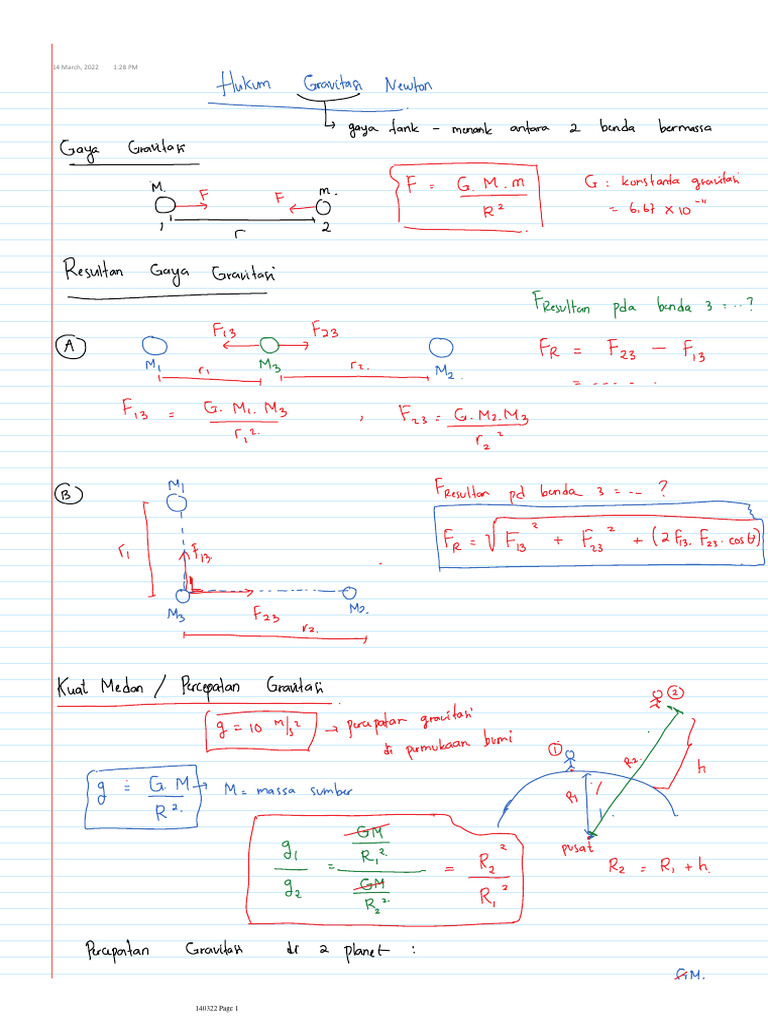 14 March, 2022 1:28 PM
Hukum Gravitasi Newton
↳ gaya tarik - menarik antara 2 benda bermassa
Gaya Gravitasi
M. F F m.
1 r 2
F = G. M. m / R²
G : konstanta gravitasi
= 6,67 × 10⁻¹¹
Resultan Gaya Gravitasi
FResultan pda benda 3 = ...?
A
F13 F23
M1 r1 M3 r2. M2.
FR = F23 - F13
= ......
F13 = G. M1. M3 / r1². , F23 = G. M2. M3 / r2²
B
M1
r1 F13.
M3 F23 M2.
r2.
FResultan pd benda 3 = ... ?
FR = √F13² + F23² + (2 F13. F23. cos θ)
Kuat Medan / Percepatan Gravitasi
g = 10 m/s² → percepatan gravitasi
di permukaan bumi
g = G. M / R². → M = massa sumber
1 2
R1 R2 h
pusat
R2 = R1 + h.
g1 / g2 = GM / R1². / GM / R2². = R2² / R1²
Percepatan Gravitasi di 2 planet :
GM.
140322 Page 1